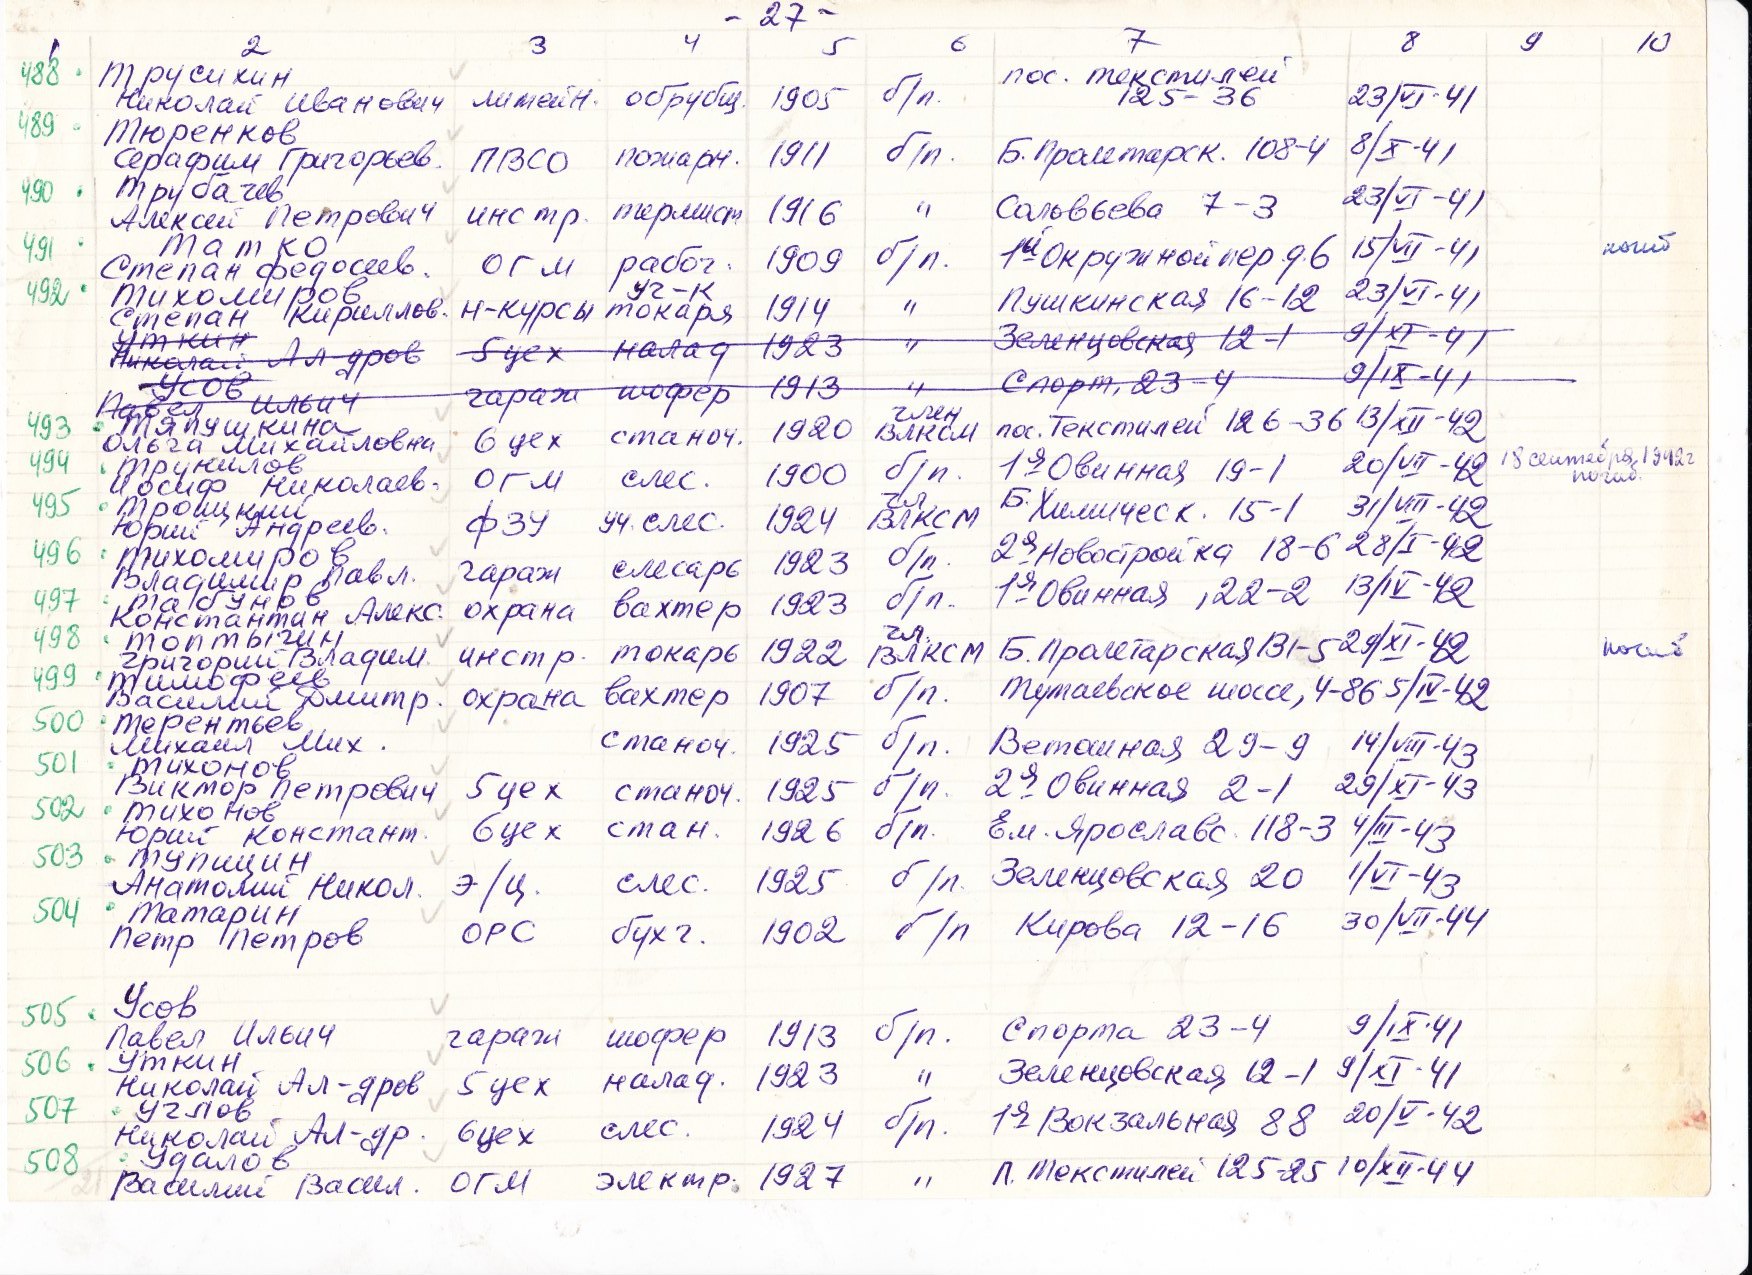 - 27 -
1 2 3 4 5 6 7 8 9 10
488 Трусихин пос. текстилей
Николай Иванович литейн. обрубщ. 1905 б/п. 125-36 23/VI-41
489 Тюренков
Серафим Григорьев. ПВСО пожарн. 1911 б/п. Б. Пролетарск. 108-4 8/X-41
490 Трубачев
Алексей Петрович инстр. термист 1916 " Соловьева 7-3 23/VI-41
491 Татко
Степан Федосеев. ОГМ рабоч. 1909 б/п. 1й Окружной пер д.6 15/VII-41 погиб
492 Тихомиров уч-к
Степан Кириллов. н-курсы токаря 1914 " Пушкинская 16-12 23/VI-41
Уткин
Николай Ал-дров 5 цех налад 1923 " Зеленцовская 12-1 9/XI-41
Усов
Павел Ильич гараж шофер 1913 " Спорт, 23-4 9/IX-41
493 Тяпушкина член
Ольга Михайловна 6 цех станоч. 1920 ВЛКСМ пос. Текстилей 126-36 13/XII-42
494 Трунилов
Иосиф Николаев. ОГМ слес. 1900 б/п. 1я Овинная 19-1 20/VII-42 18 сентября 1942г погиб.
495 Троицкий чл.
Юрий Андреев. ФЗУ уч. слес. 1924 ВЛКСМ Б. Химическ. 15-1 31/VIII-42
496 Тихомиров
Владимир Павл. гараж слесарь 1923 б/п. 2я Новостройка 18-6 28/I-42
497 Табунов
Константин Алекс. охрана вахтер 1923 б/п. 1я Овинная, 22-2 13/IV-42
498 Топтыгин чл.
Григорий Владим. инстр. токарь 1922 ВЛКСМ Б. Пролетарская 131-5 29/XI-42 погиб
499 Тимофеев
Василий Дмитр. охрана вахтер 1907 б/п. Тутаевское шоссе, 4-86 5/IV-42
500 Терентьев
Михаил Мих. станоч. 1925 б/п. Ветошная 29-9 14/VIII-43
501 Тихонов
Виктор Петрович 5 цех станоч. 1925 б/п. 2я Овинная 2-1 29/XI-43
502 Тихонов
Юрий Констант. 6 цех стан. 1926 б/п. Ем. Ярославс. 118-3 4/III-43
503 Тупицин
Анатолий Никол. э/ц. слес. 1925 б/п. Зеленцовская 20 1/VI-43
504 Татарин
Петр Петров ОРС бухг. 1902 б/п Кирова 12-16 30/VII-44
505 Усов
Павел Ильич гараж шофер 1913 б/п. Спорта 23-4 9/IX-41
506 Уткин
Николай Ал-дров 5 цех налад. 1923 " Зеленцовская 12-1 9/XI-41
507 Углов
Николай Ал-др. 6 цех слес. 1924 б/п. 1я Вокзальная 88 20/V-42
508 Удалов
Василий Васил. ОГМ электр. 1927 " П. Текстилей 125-25 10/XII-44